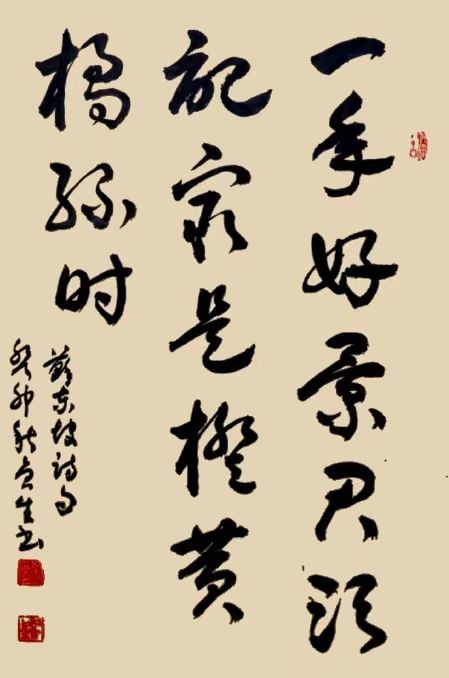 一年好景君须
记最是橙黄
橘绿时
苏东坡诗句
癸卯秋生书